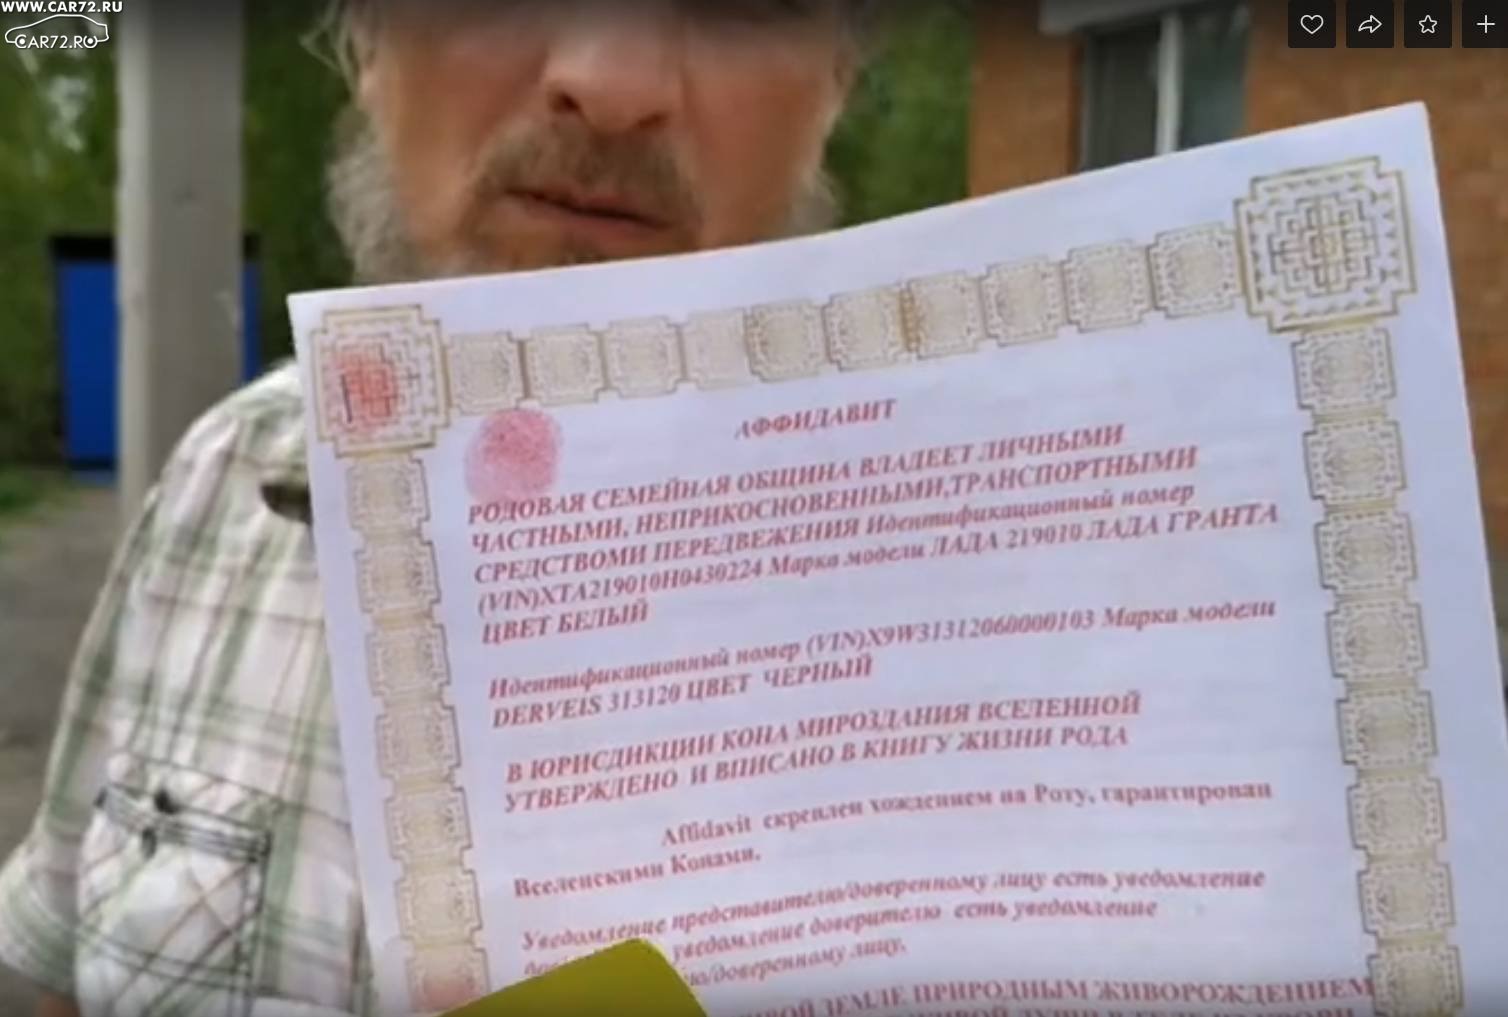 WWW.CAR72.RU
CAR72.RU
АФФИДАВИТ
РОДОВАЯ СЕМЕЙНАЯ ОБЩИНА ВЛАДЕЕТ ЛИЧНЫМИ
ЧАСТНЫМИ, НЕПРИКОСНОВЕННЫМИ,ТРАНСПОРТНЫМИ
СРЕДСТВОМИ ПЕРЕДВЕЖЕНИЯ Идентификационный номер
(VIN)XTA219010H0430224 Марка модели ЛАДА 219010 ЛАДА ГРАНТА
ЦВЕТ БЕЛЫЙ
Идентификационный номер (VIN)X9W31312060000103 Марка модели
DERVEIS 313120 ЦВЕТ ЧЕРНЫЙ
В ЮРИСДИКЦИИ КОНА МИРОЗДАНИЯ ВСЕЛЕННОЙ
УТВЕРЖДЕНО И ВПИСАНО В КНИГУ ЖИЗНИ РОДА
Affidavit скреплен хождением на Роту, гарантирован
Вселенскими Конами.
Уведомление представителю/доверенному лицу есть уведомление
уведомление доверителю есть уведомление
ю/доверенному лицу.
ЗЕМЛЕ ПРИРОДНЫМ ЖИВОРОЖДЕНИЕМ